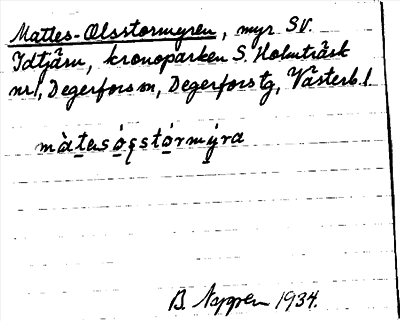 Mattes-Olsstormyren, myr SV.
Idtjärn, kronoparken S. Holmträsk
nr 1, Degerfors sn, Degerfors tg, Västerb. l.
màtesógstórmýra
B. Nygren 1934.